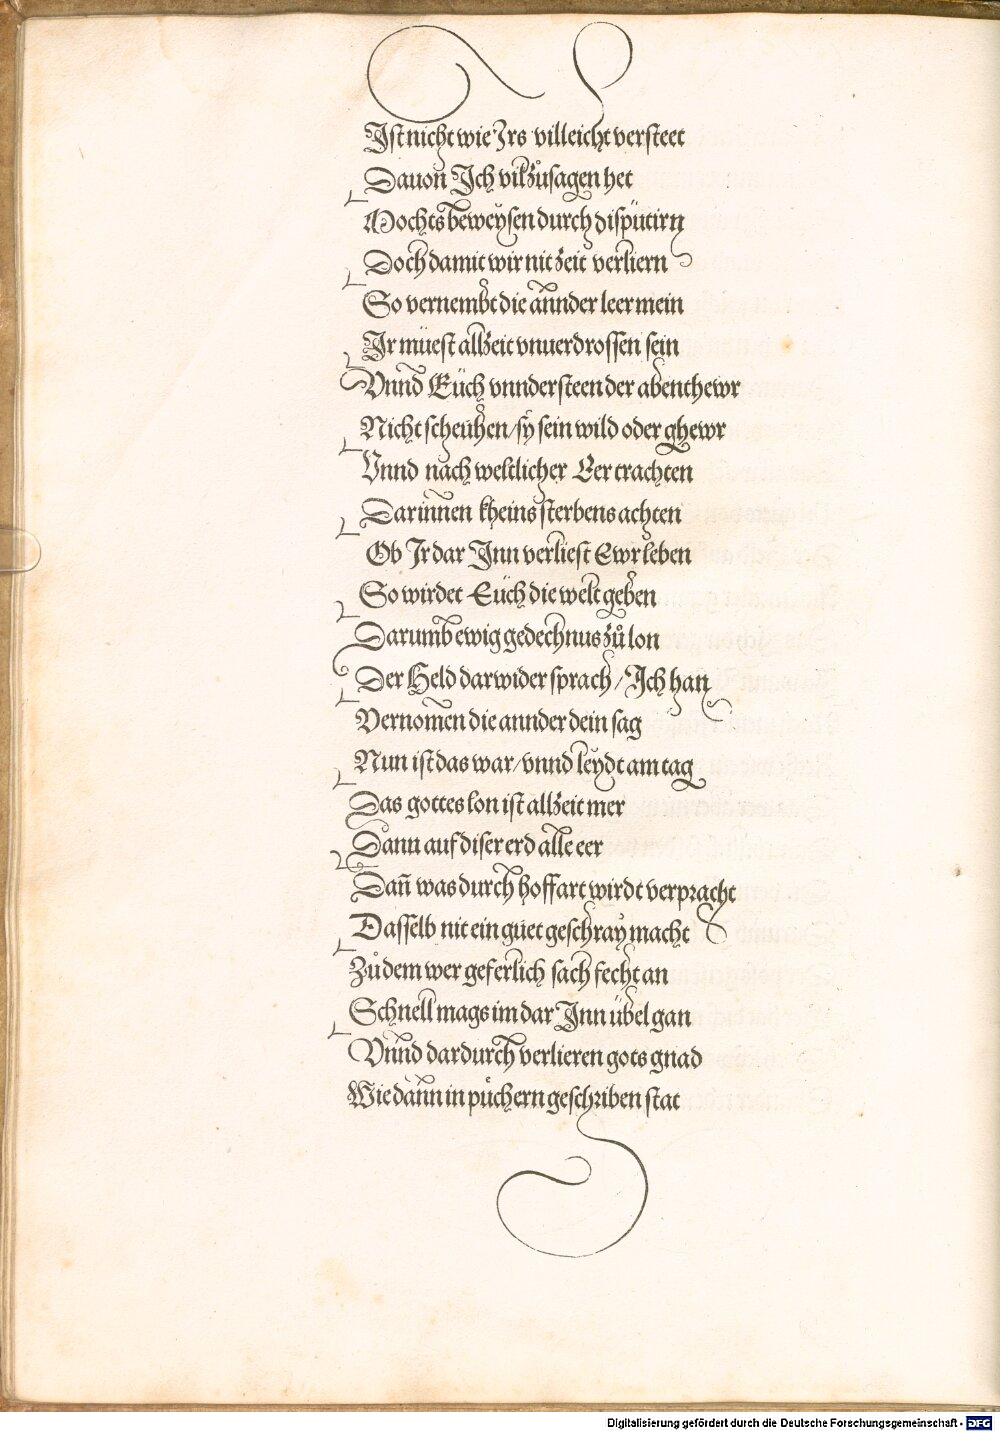 Ist nicht wie Irs villeicht versteet
Dauon Ich vil zůsagen het
Mochts beweysen durch disputirn
Doch damit wir nit zeit verliern
So vernembt die annder leer mein
Ir müest allzeit vnuerdrossen sein
Vnnd Euch vnndersteen der abenthewr
Nicht scheuhen/ sy sein wild oder ghewr
Vnnd nach weltlicher Eer trachten
Darinnen kheins sterbens achten
Ob Ir dar Inn verliest Ewr leben
So wirdet Euch die welt geben
Darumb ewig gedechnus zů lon
Der Held darwider sprach/ Ich han
Vernomen die annder dein sag
Nun ist das war/ vnnd leydt am tag
Das gottes lon ist allzeit mer
Dann auf diser erd alle eer
Dañ was durch hoffart wirdt verpracht
Dasselb nit ein guet geschray macht
Zů dem wer geferlich sach fecht an
Schnell mags im dar Inn übel gan
Vnnd dardurch verlieren gots gnad
Wie dann in půchern geschriben stat
Digitalisierung gefördert durch die Deutsche Forschungsgemeinschaft - DFG